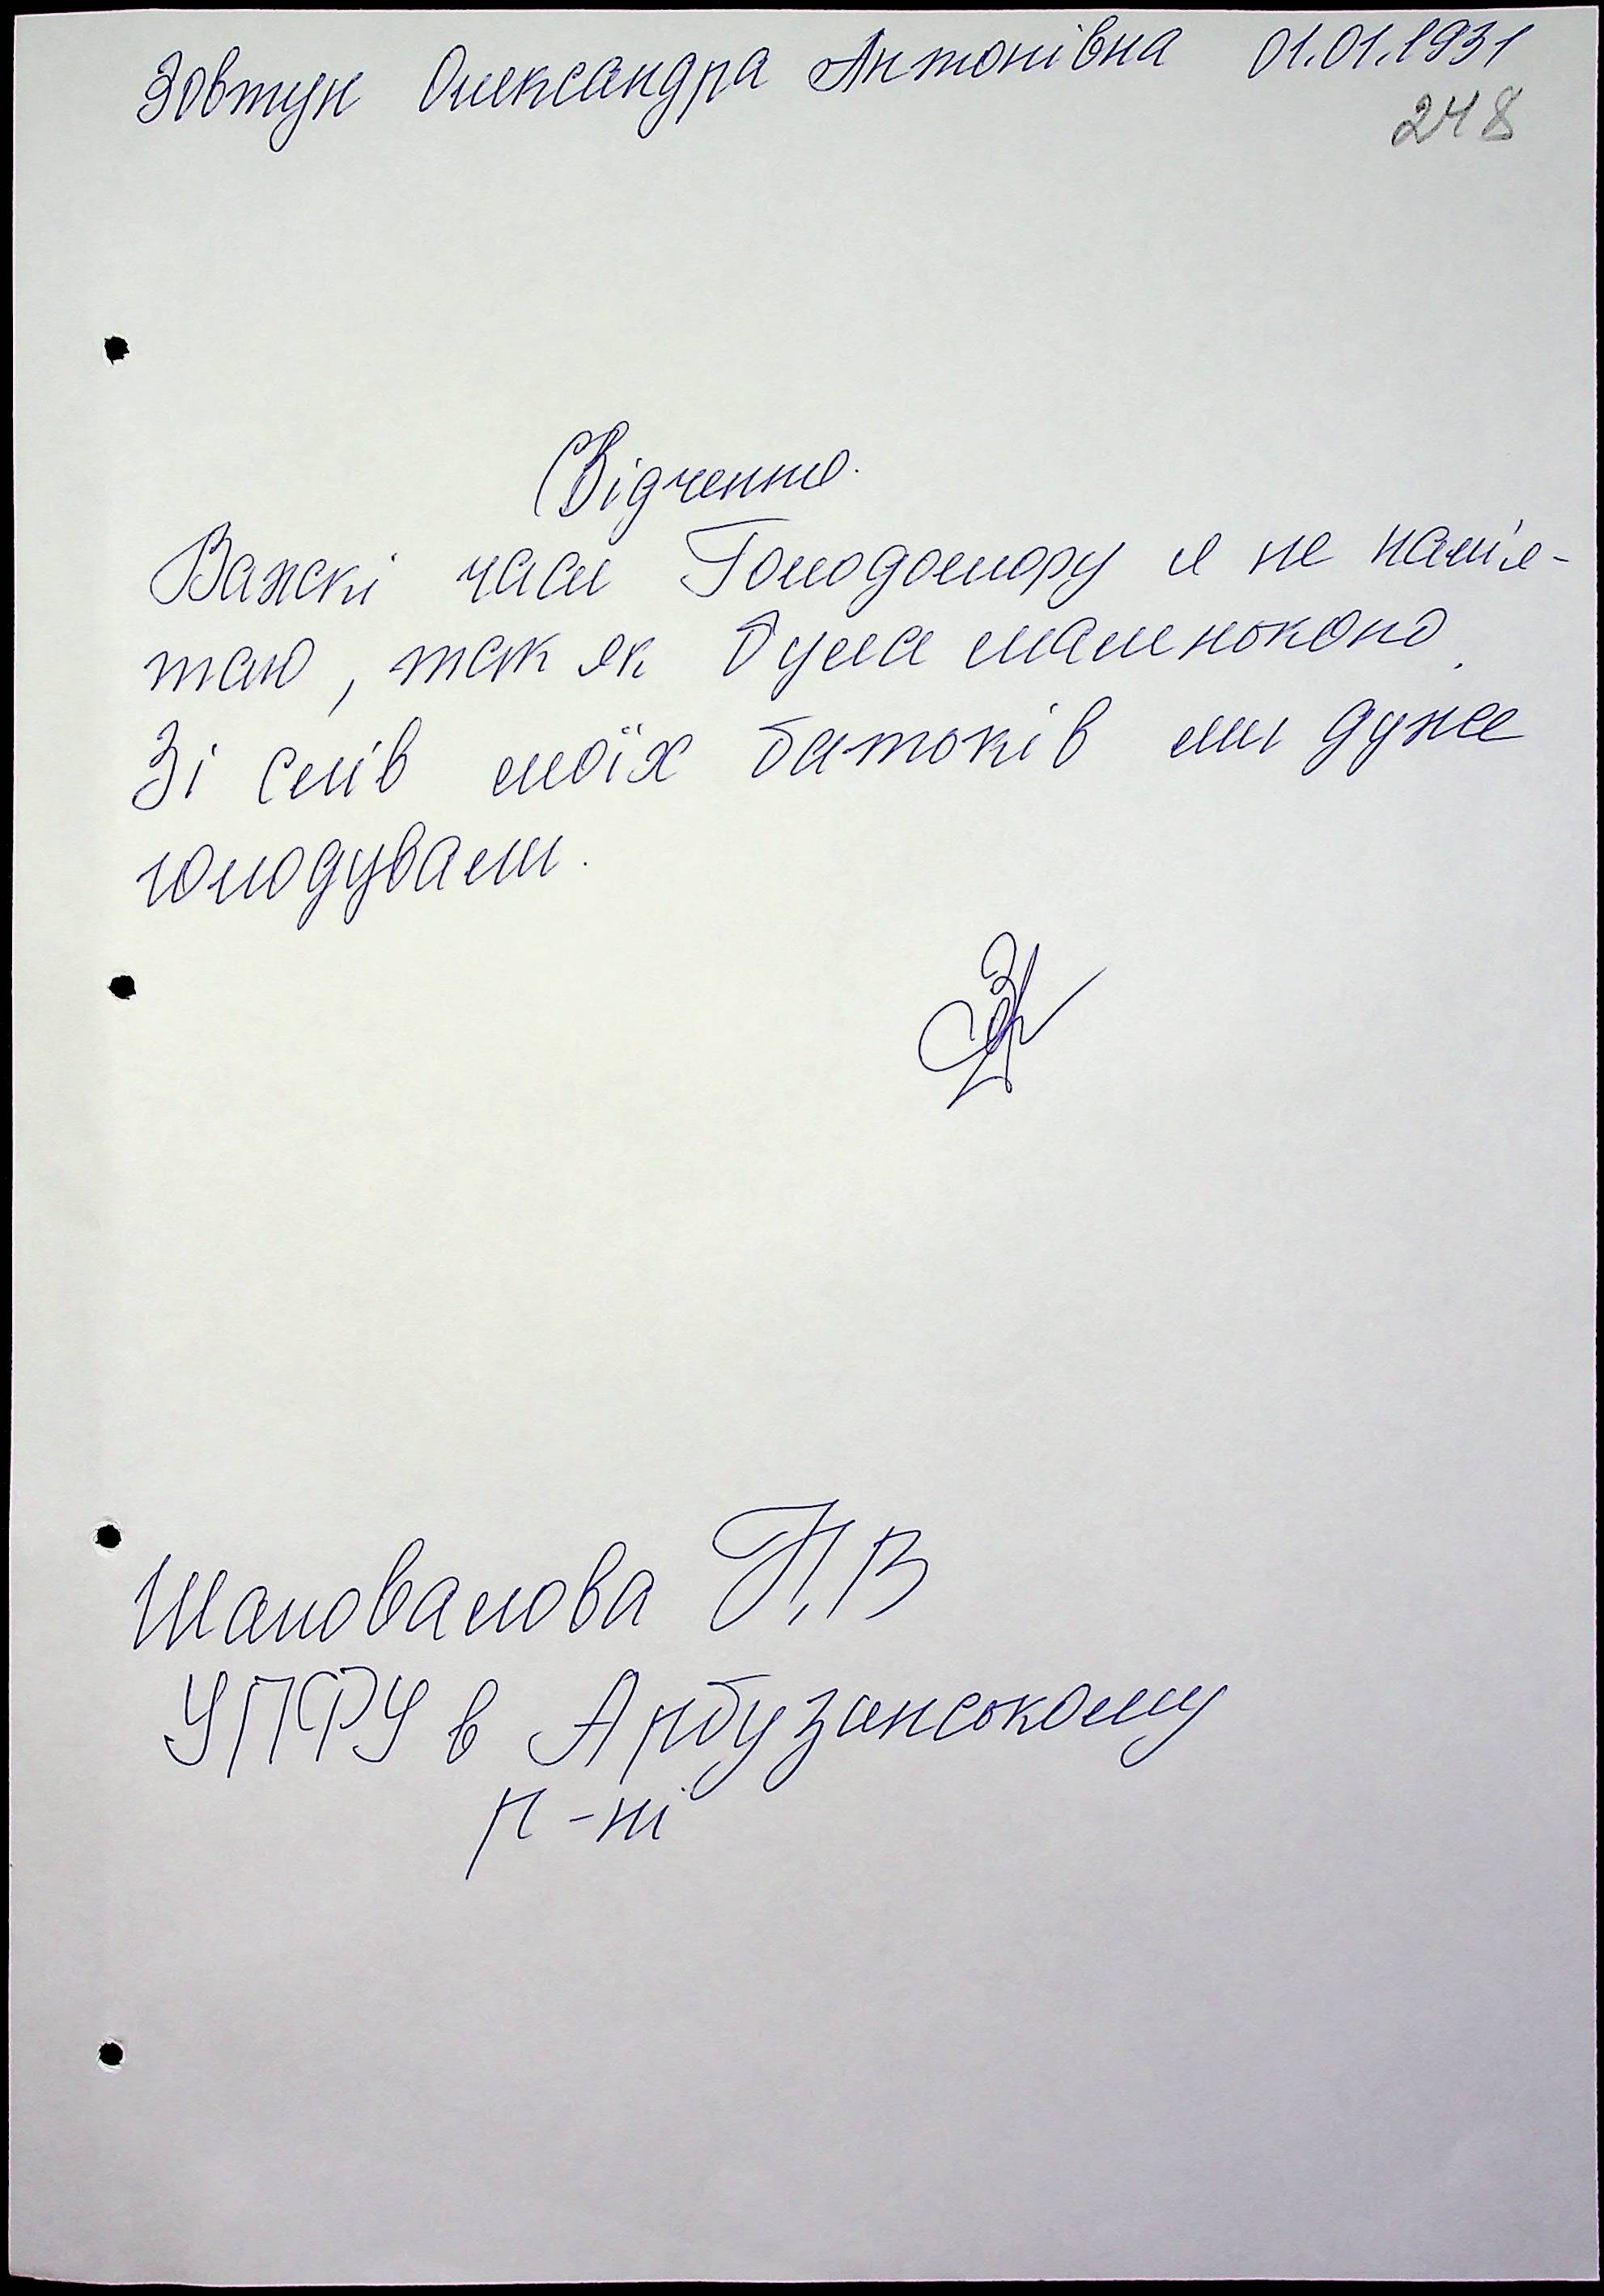 Зовтун Олександра Антонівна 01.01.1931
248
Свідчення.
Важкі часи Голодомору я не пам'я-
таю, так як була маленькою.
Зі слів моїх батьків ми дуже
голодували.
Шаповалова Н.В
УПФУ в Арбузинському
р-ні